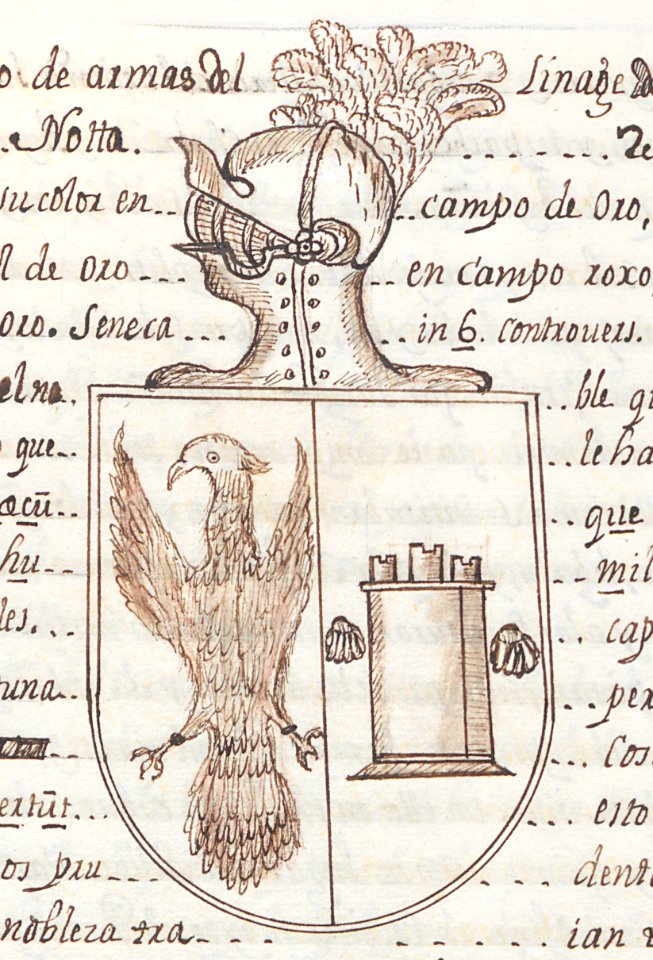 o de armas del Linage
Notta.
su color en.. ..campo de Oro,
l de oro... ..en campo roxo
oro. Seneca... ..in 6. controuers.
..ble q
que.. ..le ha
..que
hu.. ..mil
les... ..cap
tuna.. ..per
...Cos
...esto
os pru ....denta
noblera tra.... .....ian